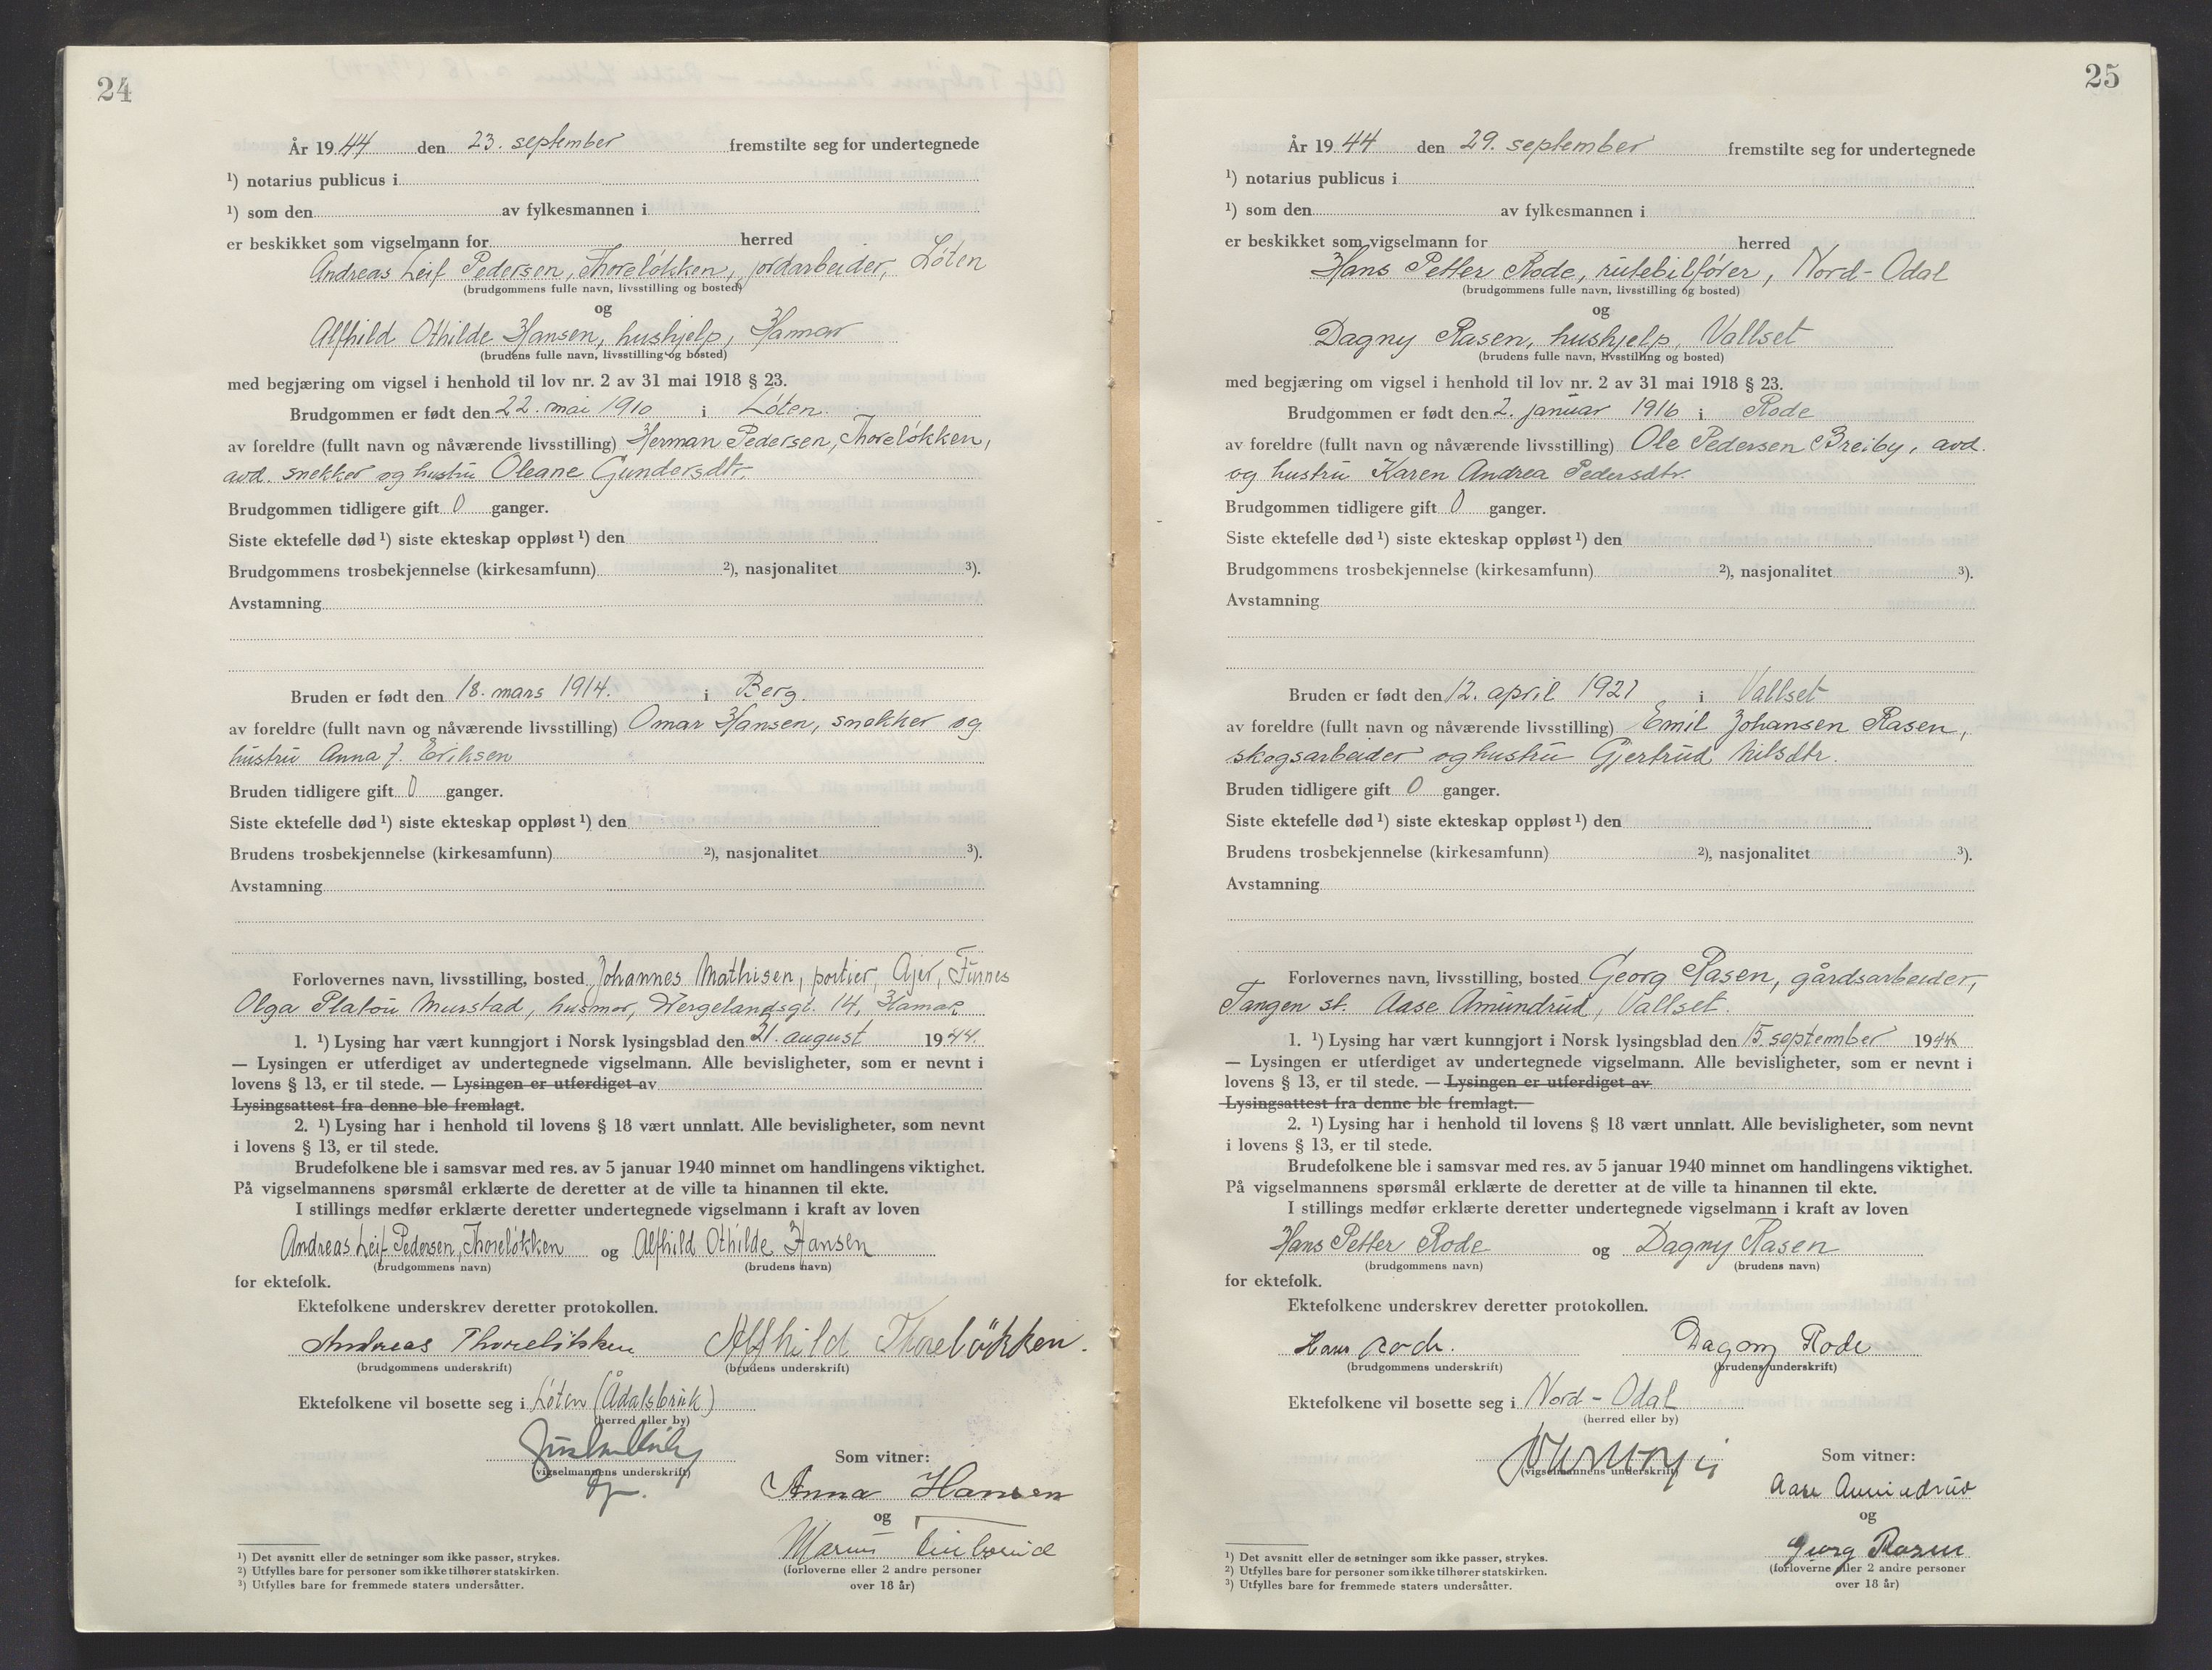 24
År 1944 den 23. september fremstilte seg for undertegnede
¹) notarius publicus i
¹) som den av fylkesmannen i
er beskikket som vigselmann for herred
Andreas Leif Pedersen, Thoreløkken, jordarbeider, Løten
(brudgommens fulle navn, livsstilling og bosted)
og
Alfhild Othilde Hansen, hushjelp, Hamar
(brudens fulle navn, livsstilling og bosted)
med begjæring om vigsel i henhold til lov nr. 2 av 31 mai 1918 § 23.
Brudgommen er født den 22. mai 1910 i Løten.
av foreldre (fullt navn og nåværende livsstilling) Herman Pedersen, Thoreløkken,
avd. snekker og hustru Oleane Gundersdtr.
Brudgommen tidligere gift 0 ganger.
Siste ektefelle død ¹) siste ekteskap oppløst ¹) den
Brudgommens trosbekjennelse (kirkesamfunn) ²), nasjonalitet ³).
Avstamning
Bruden er født den 18. mars 1914. i Berg.
av foreldre (fullt navn og nåværende livsstilling) Omar Hansen, snekker og
hustru Anna J. Eriksen
Bruden tidligere gift 0 ganger.
Siste ektefelle død ¹) siste ekteskap oppløst ¹) den
Brudens trosbekjennelse (kirkesamfunn) ²), nasjonalitet ³).
Avstamning
Forlovernes navn, livsstilling, bosted Johannes Mathisen, portier, Ajer, Furnes
Olga Platou Murstad, husmor, Wergelandsgt. 14, Hamar.
1. ¹) Lysing har vært kunngjort i Norsk lysingsblad den 21. august 1944.
— Lysingen er utferdiget av undertegnede vigselmann. Alle bevisligheter, som er nevnt i
lovens § 13, er til stede. — Lysingen er utferdiget av
Lysingsattest fra denne ble fremlagt.
2. ¹) Lysing har i henhold til lovens § 18 vært unnlatt. Alle bevisligheter, som nevnt
i lovens § 13, er til stede.
Brudefolkene ble i samsvar med res. av 5 januar 1940 minnet om handlingens viktighet.
På vigselmannens spørsmål erklærte de deretter at de ville ta hinannen til ekte.
I stillings medfør erklærte deretter undertegnede vigselmann i kraft av loven
Andreas Leif Pedersen, Thoreløkken og Alfhild Othilde Hansen
(brudgommens navn) (brudens navn)
for ektefolk.
Ektefolkene underskrev deretter protokollen.
Andreas Thoreløkken Alfhild Thoreløkken.
(brudgommens underskrift) (brudens underskrift)
Ektefolkene vil bosette seg i Løten (Ådalsbruk)
(herred eller by)
(vigselmannens underskrift)
Som vitner:
Anna Hansen
og
Marius
(forloverne eller 2 andre personer
over 18 år)
¹) Det avsnitt eller de setninger som ikke passer, strykes.
²) Utfylles bare for personer som ikke tilhører statskirken.
³) Utfylles bare for fremmede staters undersåtter.
25
År 1944 den 29. september fremstilte seg for undertegnede
¹) notarius publicus i
¹) som den av fylkesmannen i
er beskikket som vigselmann for herred
Hans Petter Rode, rutebilfører, Nord-Odal
(brudgommens fulle navn, livsstilling og bosted)
og
Dagny Rasen, hushjelp, Vallset
(brudens fulle navn, livsstilling og bosted)
med begjæring om vigsel i henhold til lov nr. 2 av 31 mai 1918 § 23.
Brudgommen er født den 2. januar 1916 i Rode
av foreldre (fullt navn og nåværende livsstilling) Ole Pedersen Breiby, avd.
og hustru Karen Andrea Pedersdtr.
Brudgommen tidligere gift 0 ganger.
Siste ektefelle død ¹) siste ekteskap oppløst ¹) den
Brudgommens trosbekjennelse (kirkesamfunn) ²), nasjonalitet ³).
Avstamning
Bruden er født den 12. april 1921 i Vallset
av foreldre (fullt navn og nåværende livsstilling) Emil Johansen Rasen,
skogsarbeider og hustru Gjertrud Nilsdtr.
Bruden tidligere gift 0 ganger.
Siste ektefelle død ¹) siste ekteskap oppløst ¹) den
Brudens trosbekjennelse (kirkesamfunn) ²), nasjonalitet ³).
Avstamning
Forlovernes navn, livsstilling, bosted Georg Rasen, gårdsarbeider,
Tangen st. Aase Amundrud, Vallset.
1. ¹) Lysing har vært kunngjort i Norsk lysingsblad den 15. september 1944
— Lysingen er utferdiget av undertegnede vigselmann. Alle bevisligheter, som er nevnt i
lovens § 13, er til stede. — Lysingen er utferdiget av
Lysingsattest fra denne ble fremlagt.
2. ¹) Lysing har i henhold til lovens § 18 vært unnlatt. Alle bevisligheter, som nevnt
i lovens § 13, er til stede.
Brudefolkene ble i samsvar med res. av 5 januar 1940 minnet om handlingens viktighet.
På vigselmannens spørsmål erklærte de deretter at de ville ta hinannen til ekte.
I stillings medfør erklærte deretter undertegnede vigselmann i kraft av loven
Hans Petter Rode og Dagny Rasen
(brudgommens navn) (brudens navn)
for ektefolk.
Ektefolkene underskrev deretter protokollen.
Hans Rode. Dagny Rode
(brudgommens underskrift) (brudens underskrift)
Ektefolkene vil bosette seg i Nord-Odal
(herred eller by)
(vigselmannens underskrift)
Som vitner:
Aase Amundrud
og
Georg Rasen
(forloverne eller 2 andre personer
over 18 år)
¹) Det avsnitt eller de setninger som ikke passer, strykes.
²) Utfylles bare for personer som ikke tilhører statskirken.
³) Utfylles bare for fremmede staters undersåtter.